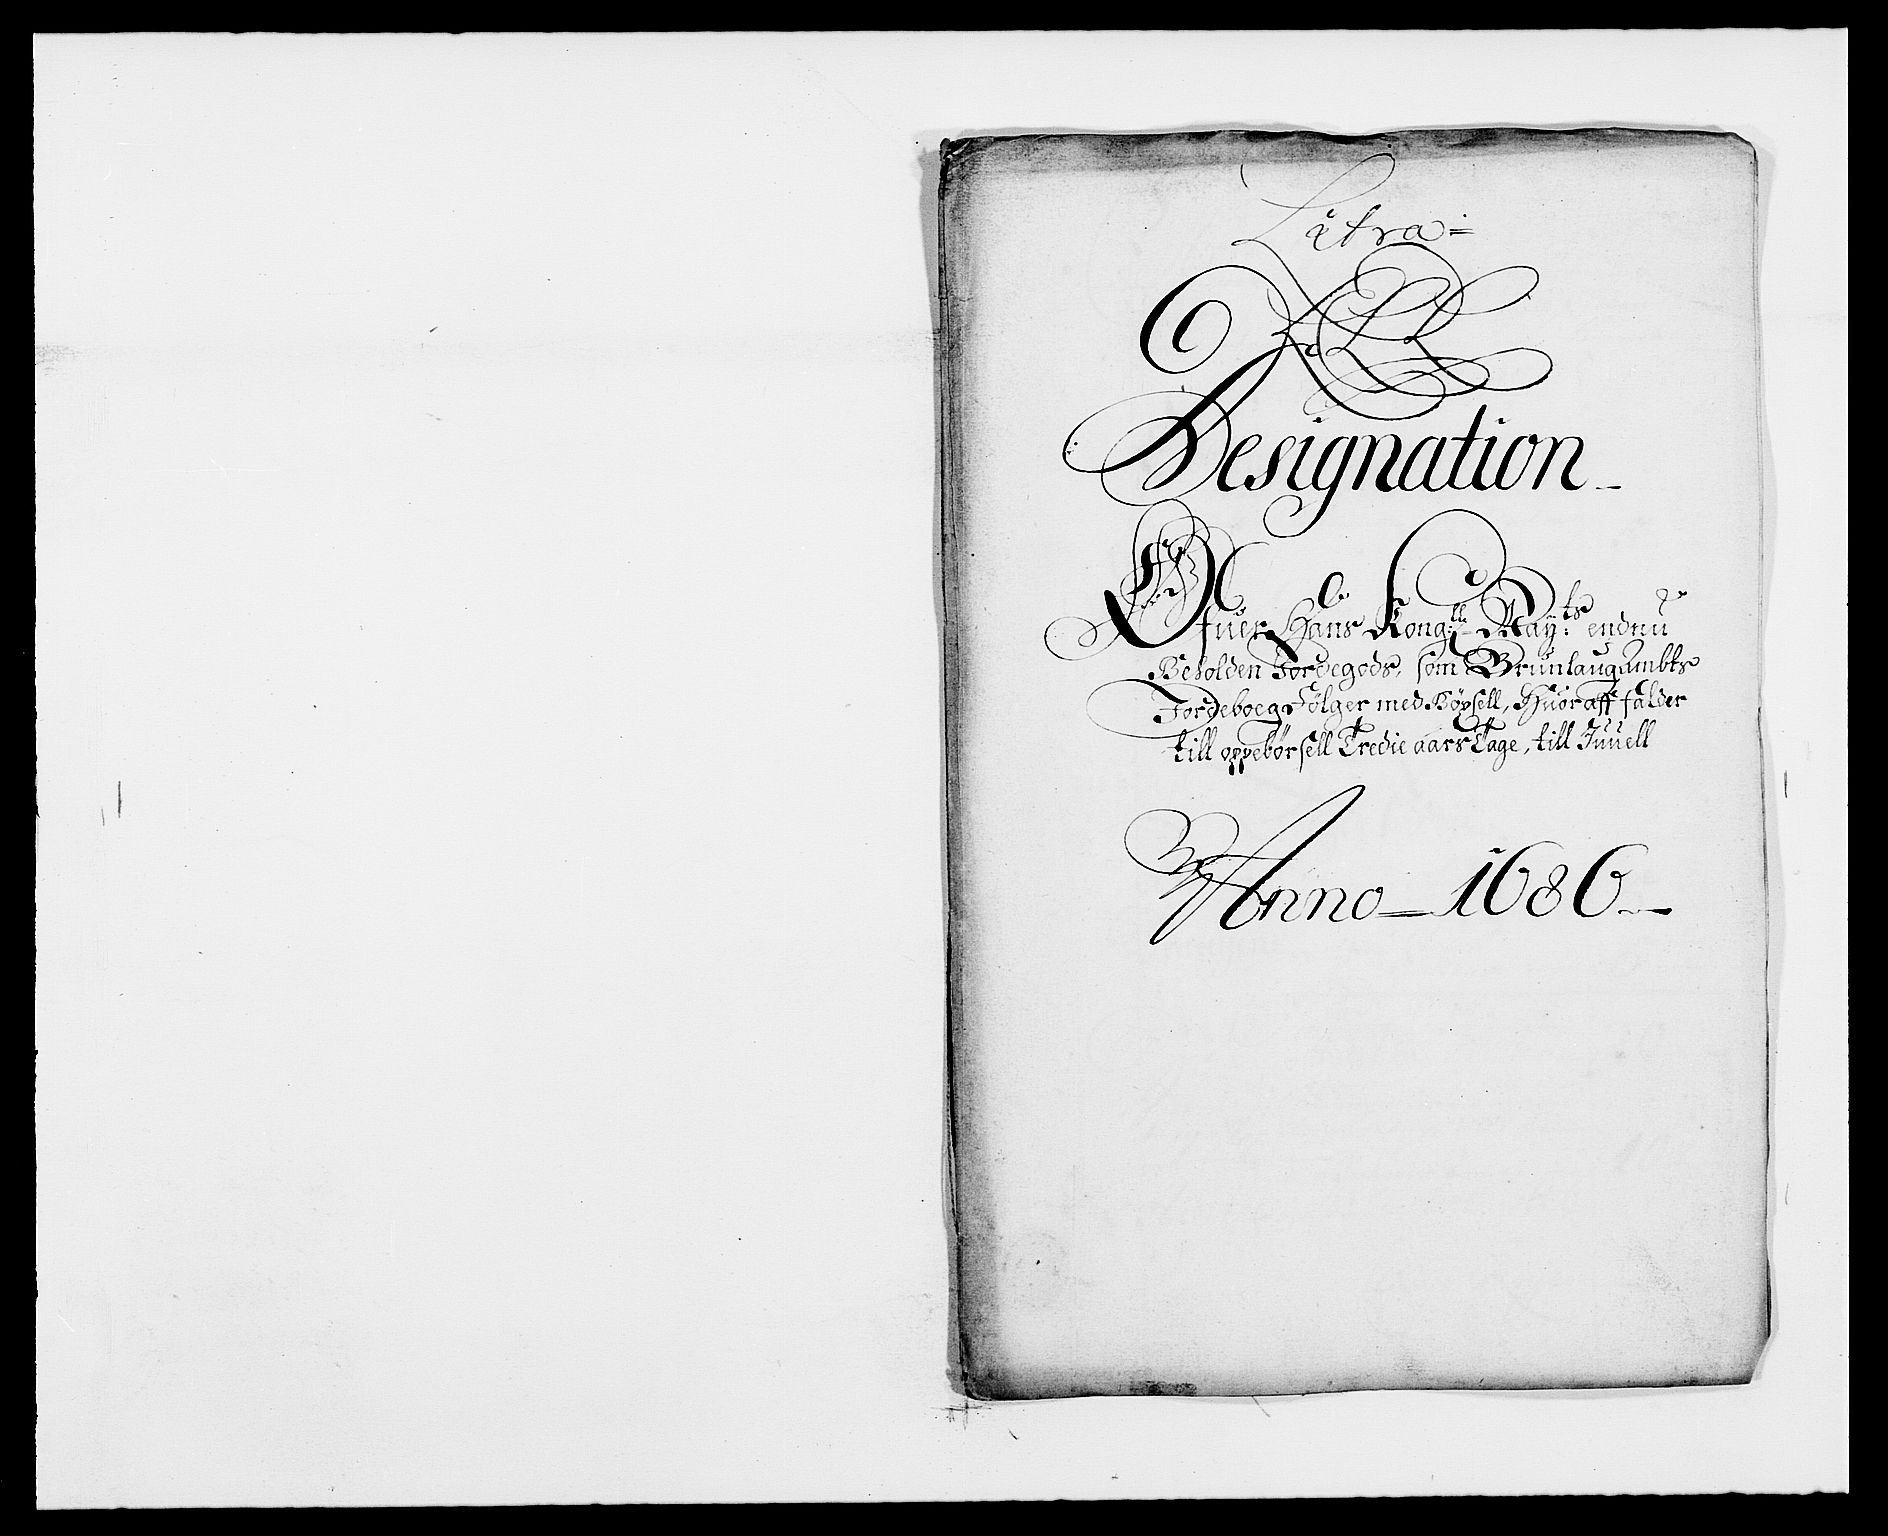 Litra =
Designation _
Ofuer Hans Kong:ll May:ts endnu
Beholden Jordegods, som Brunlaugambts
Jordeboeg følger med Bøxsell, Huoraff falder
till oppebørsell Tredie aars Tage, till Juuell
Anno = 1686 _